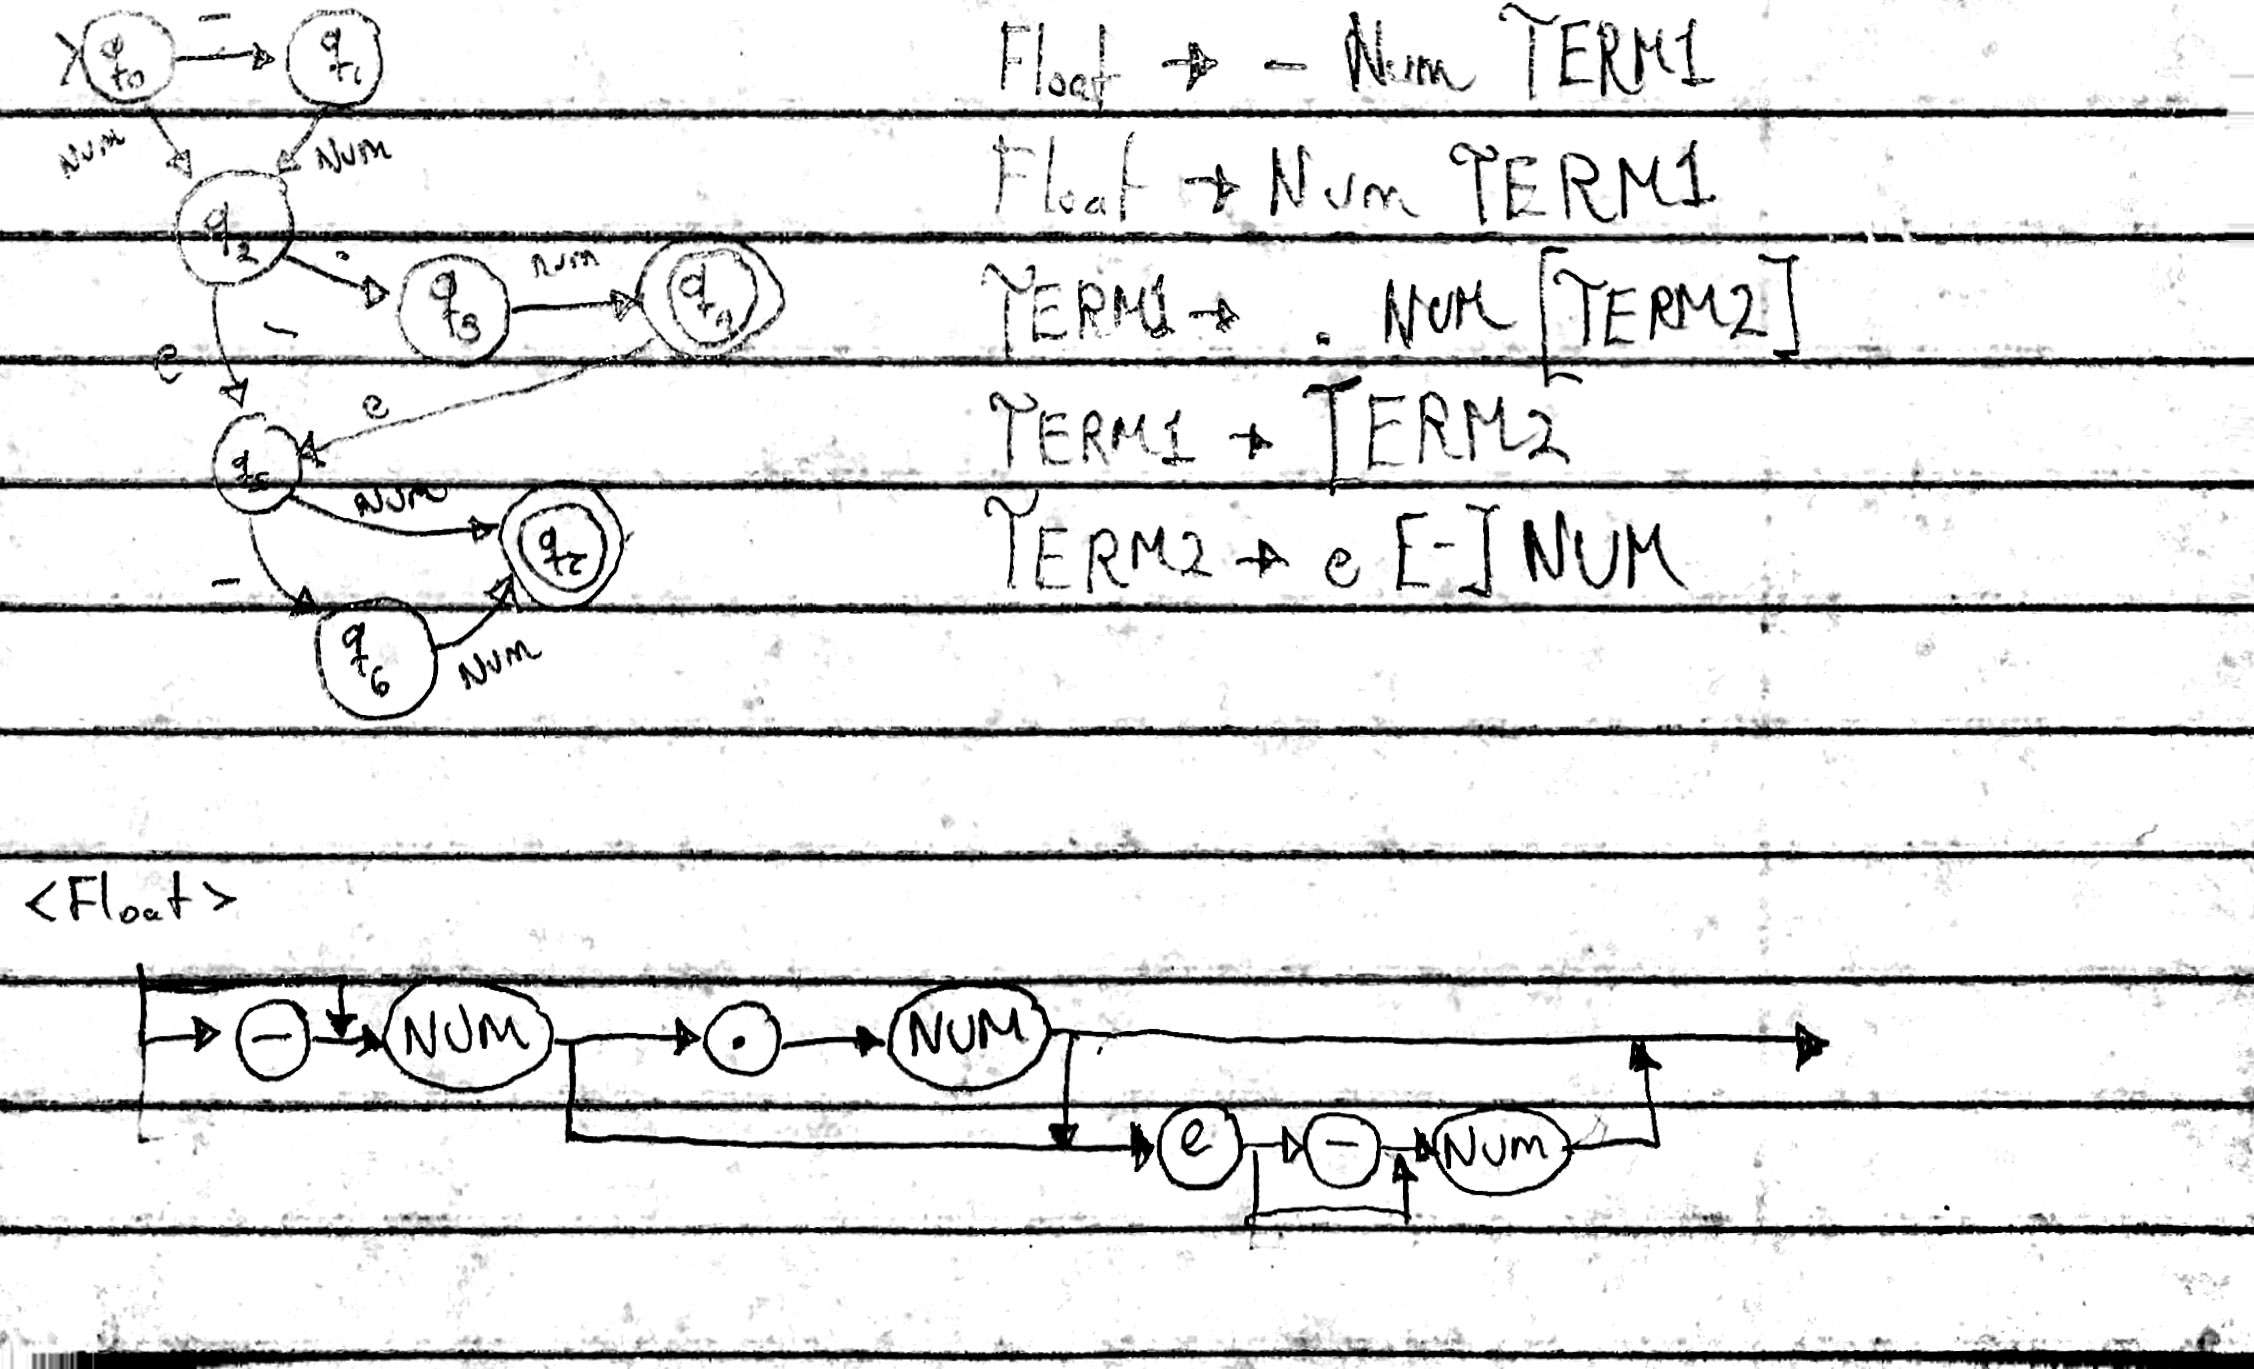 q0 - q1
Num Num
q2 . q3 num q4
e -
e
q5 Num
- q6 Num
Float → - Num TERM1
Float → Num TERM1
TERM1 → . NUM [TERM2]
TERM1 → TERM2
TERM2 → e [-] NUM
<Float>
- NUM . NUM
e - Num